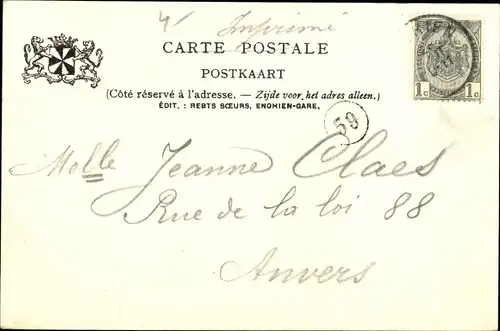 Imprimé
CARTE POSTALE
POSTKAART
(Côté réservé à l'adresse. — Zijde voor het adres alleen.)
ÉDIT. : REBTS SŒURS, ENGHIEN-GARE.
1c 1c
59
Melle Jeanne Claes
Rue de la loi 88
Anvers